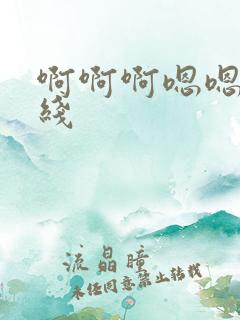 啊啊啊嗯嗯
线
流晶瞳
未经同意禁止转载